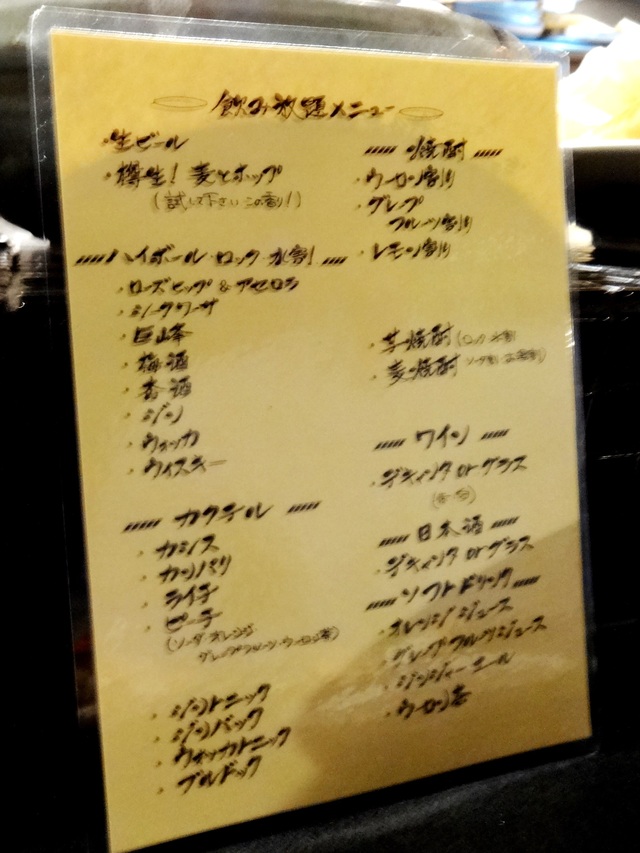 飲み放題メニュー
・生ビール
・樽生！麦とホップ
ハイボール・ロック・水割
・ローズヒップ&アセロラ
・シークワーサ
・巨峰
・梅酒
・杏酒
・ジン
・ウォッカ
・ウィスキー
カクテル
・カシス
・カンパリ
・ライチ
・ピーチ
(ソーダ・オレンジ
・ジントニック
・ジンバック
・ウォッカトニック
・ブルドック
焼酎
・ウーロン割り
・グレープ
フルーツ割り
・レモン割り
・芋焼酎(ロック 水割
・麦焼酎
ワイン
・デキャンタ or グラス
日本酒
・デキャンタ or グラス
ソフトドリンク
・オレンジジュース
・グレープフルーツジュース
・ジンジャーエール
・ウーロン茶